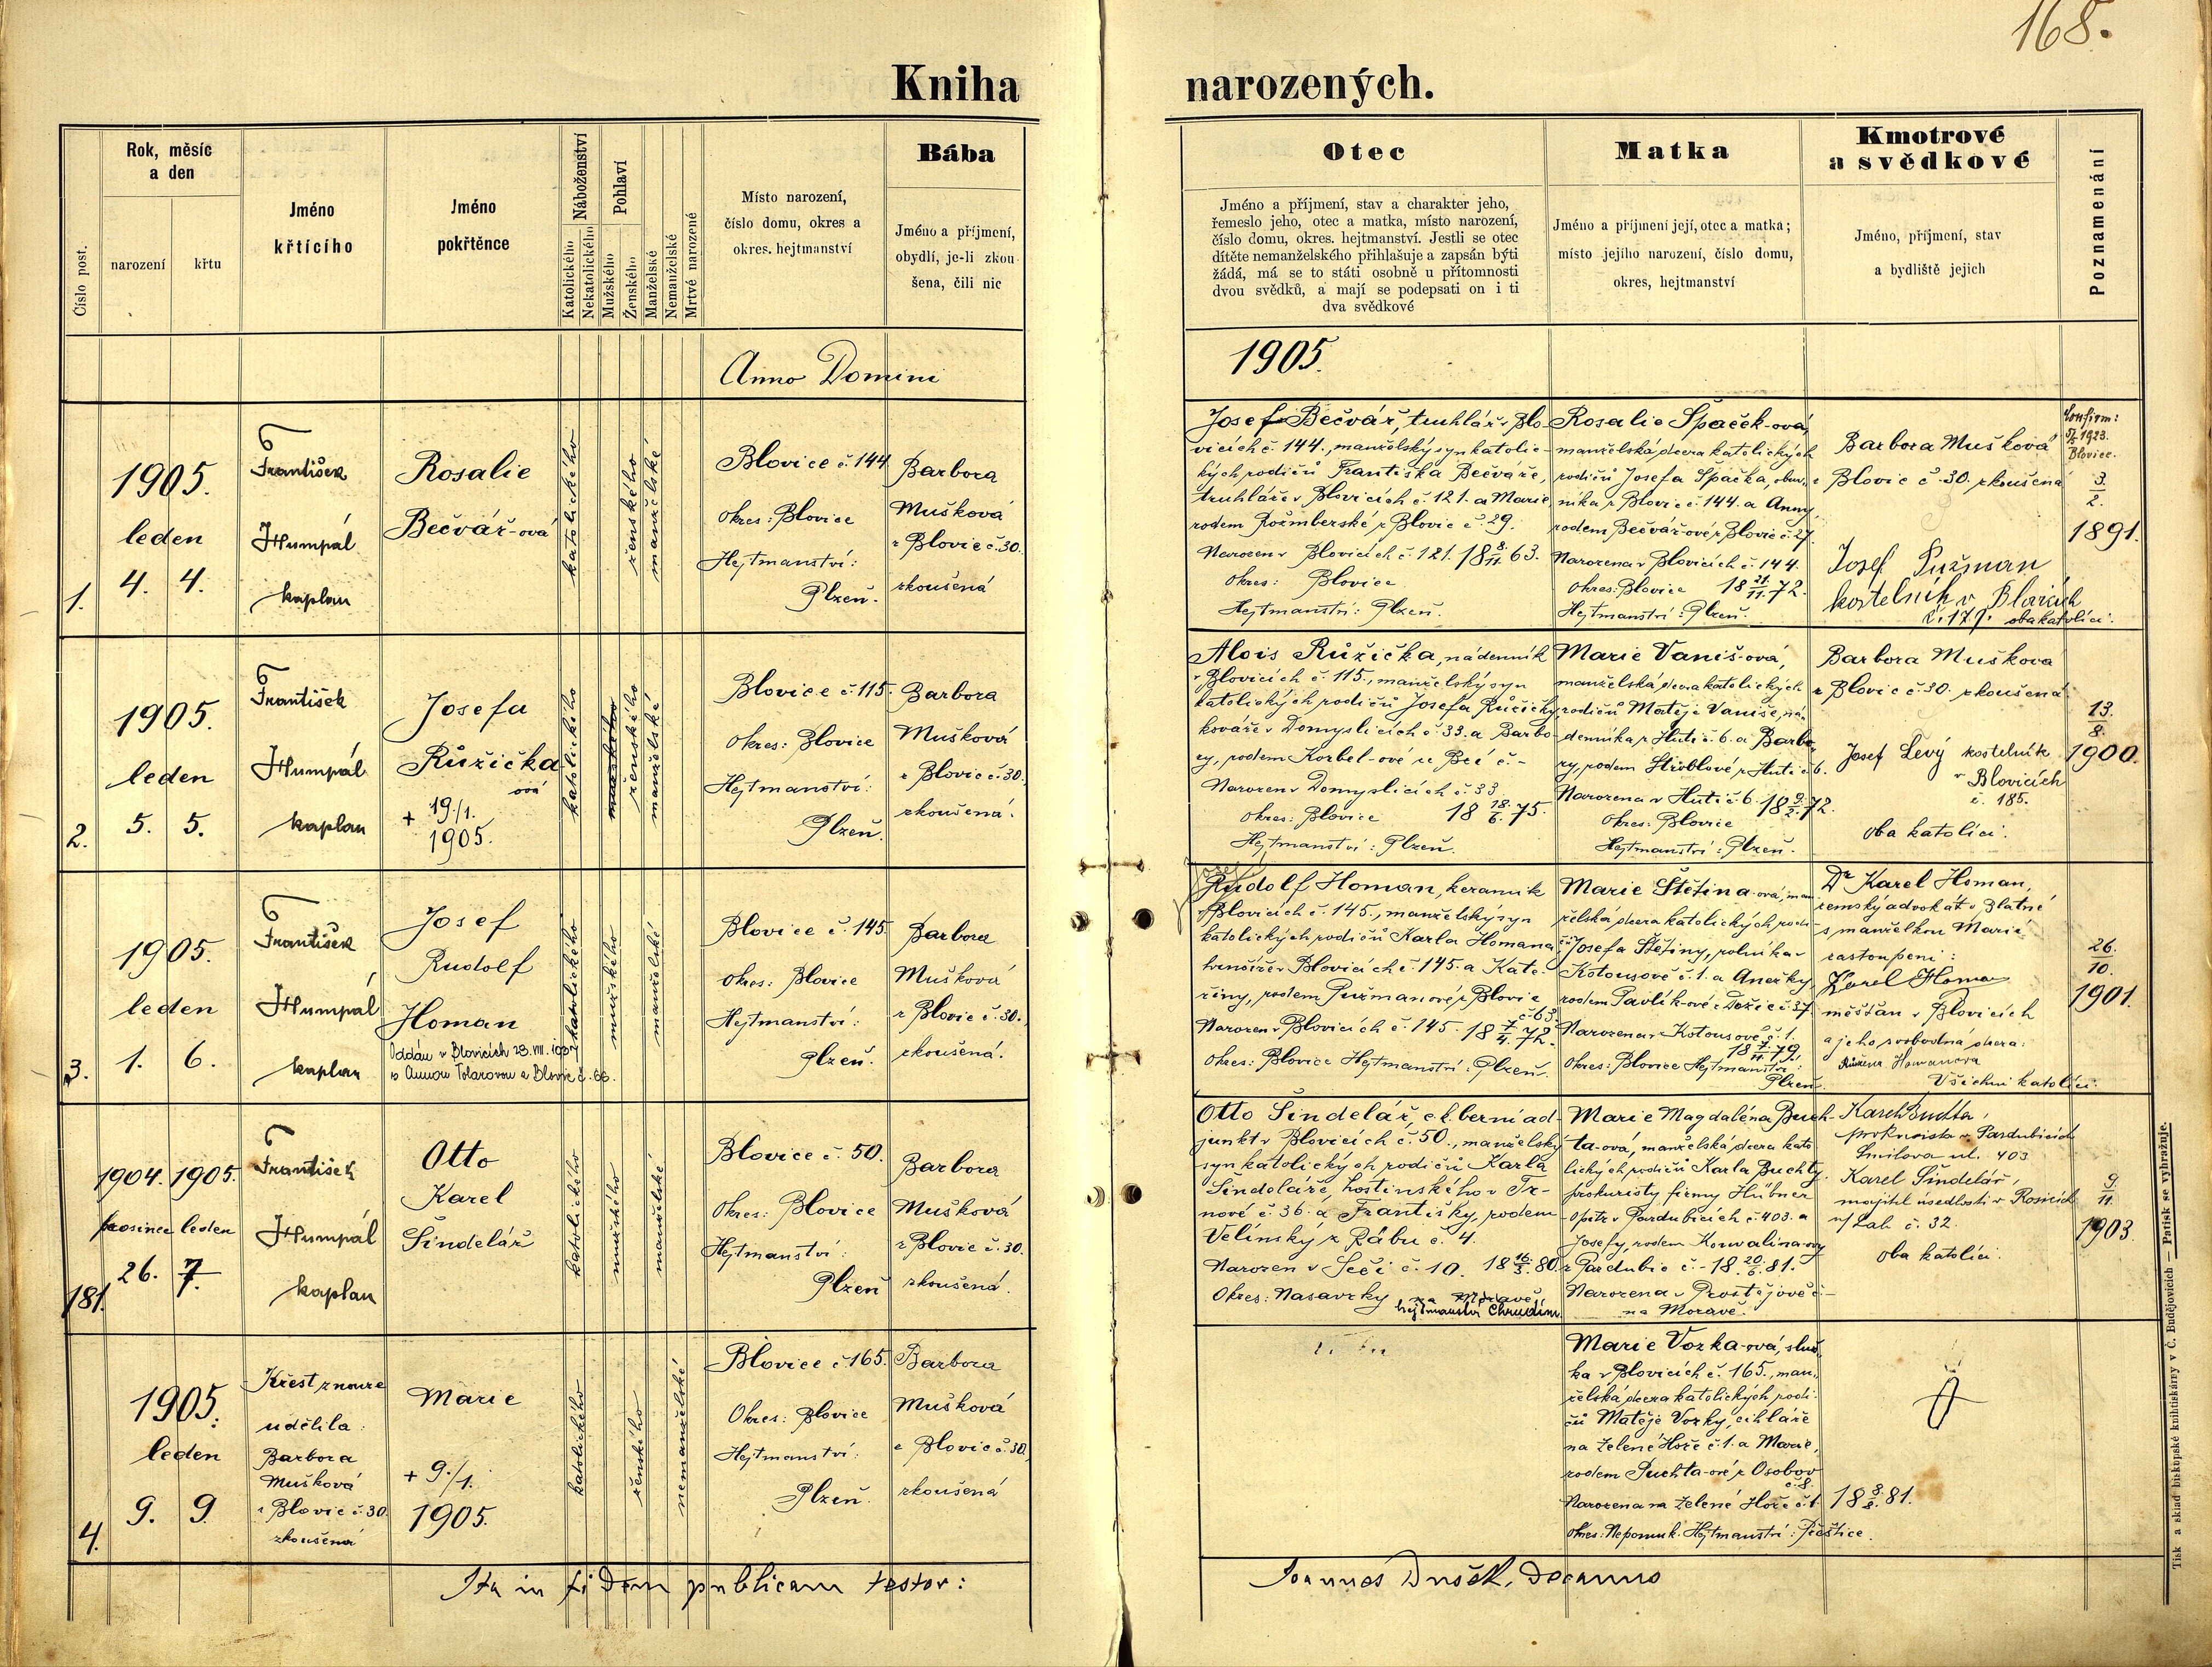 168.
Kniha narozených.
Číslo post.
Rok, měsíc
a den
narození
křtu
Jméno
křtícího
Jméno
pokřtěnce
Náboženství
Katolického
Nekatolického
Pohlaví
Mužského
Ženského
Manželské
Nemanželské
Mrtvé narozené
Místo narození,
číslo domu, okres a
okres. hejtmanství
Bába
Jméno a příjmení,
obydlí, je-li zkou-
šena, čili nic
Otec
Jméno a příjmení, stav a charakter jeho,
řemeslo jeho, otec a matka, místo narození,
číslo domu, okres. hejtmanství. Jestli se otec
dítěte nemanželského přihlašuje a zapsán býti
žádá, má se to státi osobně u přítomnosti
dvou svědků, a mají se podepsati on i ti
dva svědkové
Matka
Jméno a příjmení její, otec a matka;
místo jejího narození, číslo domu,
okres, hejtmanství
Kmotrové
a svědkové
Jméno, příjmení, stav
a bydliště jejich
Poznamenání
Anno Domini
1905.
1.
1905.
leden
4. 4.
František
Humpál
kaplan
Rosalie
Bečvář-ová
katolického
ženského
manželské
Blovice č. 144
Okres: Blovice
Hejtmanství:
Plzeň.
Barbora
Mušková
z Blovic č. 30.
zkoušená
Josef Bečvář, truhlář v Blo-
vicích č. 144., manželský syn katolic-
kých rodičů Františka Bečváře,
truhláře v Blovicích č. 121. a Marie,
rodem Rožmberské z Blovic č. 29.
Narozen v Blovicích č. 121. 18 8/11. 63.
Okres: Blovice
Hejtmanství: Plzeň.
Rosalie Špaček-ová,
manželská dcera katolických
rodičů Josefa Špačka, obuv-
níka z Blovic č. 144. a Anny,
rodem Bečvář-ové z Blovic č. 27.
Narozena v Blovicích č. 144.
Okres: Blovice 18 21/11. 72.
Hejtmanství: Plzeň.
Barbora Mušková
z Blovic č. 30. zkoušená
Josef Pužman
kostelník v Blovicích
č. 179. oba katolíci.
1923.
Blovice.
3./2.
1891.
2.
1905.
leden
5. 5.
František
Humpál
kaplan
Josefa
Růžička
ová
+ 19./1.
1905.
katolického
mužského
ženského
manželské
Blovice č. 115.
Okres: Blovice
Hejtmanství:
Plzeň.
Barbora
Mušková
z Blovic č. 30.
zkoušená.
Alois Růžička, nádenník
v Blovicích č. 115., manželský syn
katolických rodičů Josefa Růžičky,
kováře v Domyslicích č. 33. a Barbo-
ry, rodem Korbel-ové ze č. -
Narozen v Domyslicích č. 33.
Okres: Blovice 18 18/6. 75.
Hejtmanství: Plzeň.
Marie Vaniš-ová,
manželská dcera katolických
rodičů Matěje Vaniše, ná-
denníka z Huti č. 6. a Barbo-
ry, rodem Ströblové z Huti č. 6.
Narozena v Huti č. 6. 18 9/2. 72.
Okres: Blovice
Hejtmanství: Plzeň.
Barbora Mušková
z Blovic č. 30. zkoušená
Josef Levý kostelník
v Blovicích
č. 185.
oba katolíci.
13./8.
1900.
3.
1905.
leden
1. 6.
František
Humpál
kaplan
Josef
Rudolf
Homan
Oddán v Blovicích 23. VIII.
s Annou Tolarovou z Blovic č. 66.
katolického
mužského
manželské
Blovice č. 145.
Okres: Blovice
Hejtmanství:
Plzeň.
Barbora
Mušková
z Blovic č. 30.
zkoušená.
Rudolf Homan, keramik
v Blovicích č. 145., manželský syn
katolických rodičů Karla Homana
hrnčíře v Blovicích č. 145. a Kate-
řiny, rodem Pužmanové z Blovic
č. 63.
Narozen v Blovicích č. 145. 18 7/4. 72.
Okres: Blovice Hejtmanství: Plzeň.
Marie Štětina-ová, man-
želská dcera katolických rodi-
čů Josefa Štětiny, rolníka v
Kotousově č. 1. a Anežky,
rodem Pavlík-ové z Dožic č. 37.
Narozena v Kotousově č. 1.
18 7/11. 79.
Okres: Blovice Hejtmanství:
Plzeň.
Dr Karel Homan,
zemský advokát v Blatné
s manželkou Marií
zastoupeni:
Karel Homan
měšťan v Blovicích
a jeho svobodná dcera:
Růžena Homanova
Všichni katolíci.
26./10.
1901.
181.
1904. 1905.
prosinec leden
26. 7.
František
Humpál
kaplan
Otto
Karel
Šindelář
katolického
mužského
manželské
Blovice č. 50.
Okres: Blovice
Hejtmanství:
Plzeň
Barbora
Mušková
z Blovic č. 30.
zkoušená.
Otto Šindelář, c. k. berní ad-
junkt v Blovicích č. 50., manželský
syn katolických rodičů Karla
Šindeláře, hostinského v Tr-
nové č. 36. a Františky, rodem
Velínský z Rábu č. 4.
Narozen v Seči č. 10. 18 16/3. 80.
Okres: Nasavrky na Moravě.
hejtmanství Chrudim
Marie Magdaléna Buch-
ta-ová, manželská dcera kato-
lických rodičů Karla Buchty,
prokuristy firmy Hübner
Opitz v Pardubicích č. 403. a
Josefy, rodem Konvalina-ovy
z Pardubic č. - 18 20/6. 81.
Narozena v Prostějově č. -
na Moravě.
Karel Buchta,
prokurista v Pardubicích
Smilova ul. 403
Karel Šindelář,
majitel usedlosti v Rosicích
n/Lab. č. 32.
oba katolíci.
9./11.
1903.
4.
1905.
leden
9. 9.
Křest z nouze
udělila:
Barbora
Mušková
z Blovic č. 30.
zkoušená
Marie
+ 9./1.
1905.
katolického
ženského
nemanželské
Blovice č. 165.
Okres: Blovice
Hejtmanství:
Plzeň.
Barbora
Mušková
z Blovic č. 30.
zkoušená
Marie Vozka-ová, služ-
ka v Blovicích č. 165., man-
želská dcera katolických rodi-
čů Matěje Vozky, cihláře
na Zelené Hoře č. 1. a Marie,
rodem Puchta-ové z Osobov
č. 8.
Narozena na Zelené Hoře č. 1. 18 8/8. 81.
Okres: Nepomuk. Hejtmanství: Přeštice.
Ita in fidem publicam testor:
Joannes Dušek, decanus
Tisk a sklad biskupské knihtiskárny v Č. Budějovicích — Patisk se vyhražuje.